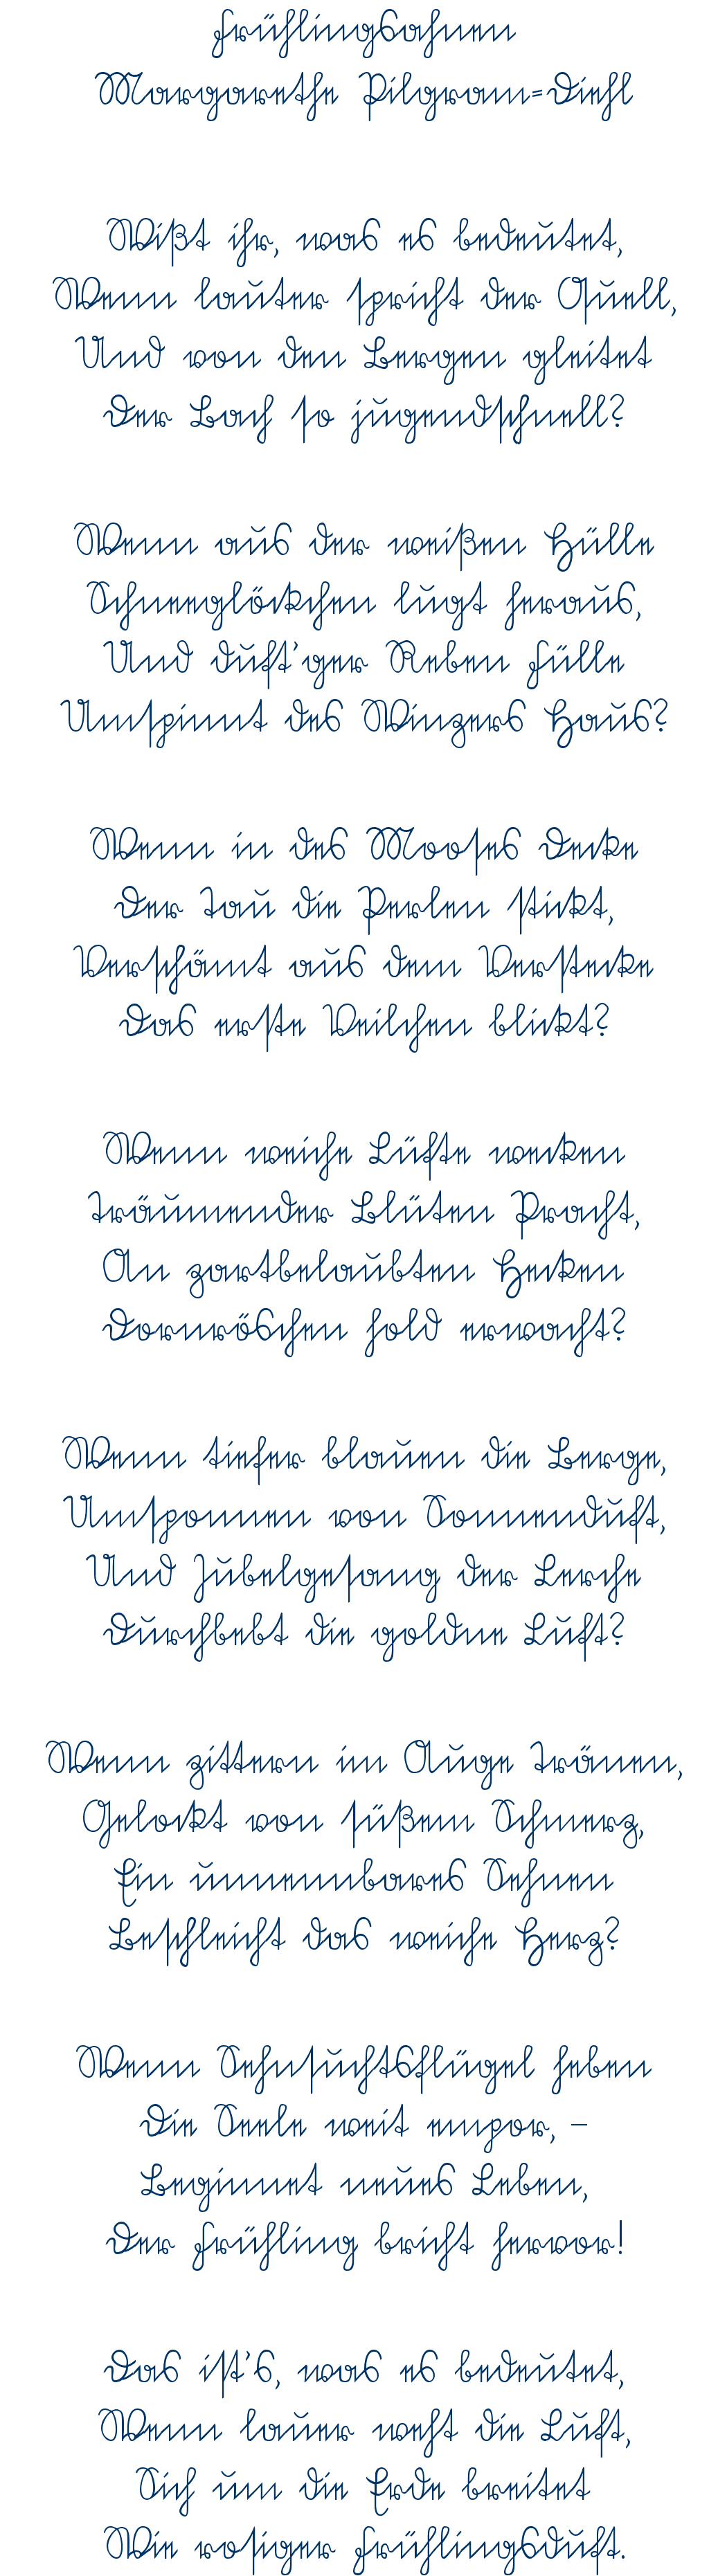 Frühlingsahnen
Margarethe Pilgram=Diehl
Wißt ihr, was es bedeutet,
Wenn lauter spricht der Quell,
Und von den Bergen gleitet
Der Bach so jugendschnell?
Wenn aus der weißen Hülle
Schneeglöckchen lugt heraus,
Und duft'ger Reben Fülle
Umspinnt des Winzers Haus?
Wenn in des Mooses Decke
Der Tau die Perlen stickt,
Verschämt aus dem Verstecke
Das erste Veilchen blickt?
Wenn weiche Lüfte wecken
Träumender Blüten Pracht,
An zartbelaubten Hecken
Dornröschen hold erwacht?
Wenn tiefer blauen die Berge,
Umsponnen von Sonnenduft,
Und Jubelgesang der Lerche
Durchbebt die goldne Luft?
Wenn zittern im Auge Tränen,
Gelockt von süßem Schmerz,
Ein unnennbares Sehnen
Beschleicht das weiche Herz?
Wenn Sehnsuchtsflügel heben
Die Seele weit empor, –
Beginnet neues Leben,
Der Frühling bricht hervor!
Das ist's, was es bedeutet,
Wenn lauer weht die Luft,
Sich um die Erde breitet
Wie rosiger Frühlingsduft.